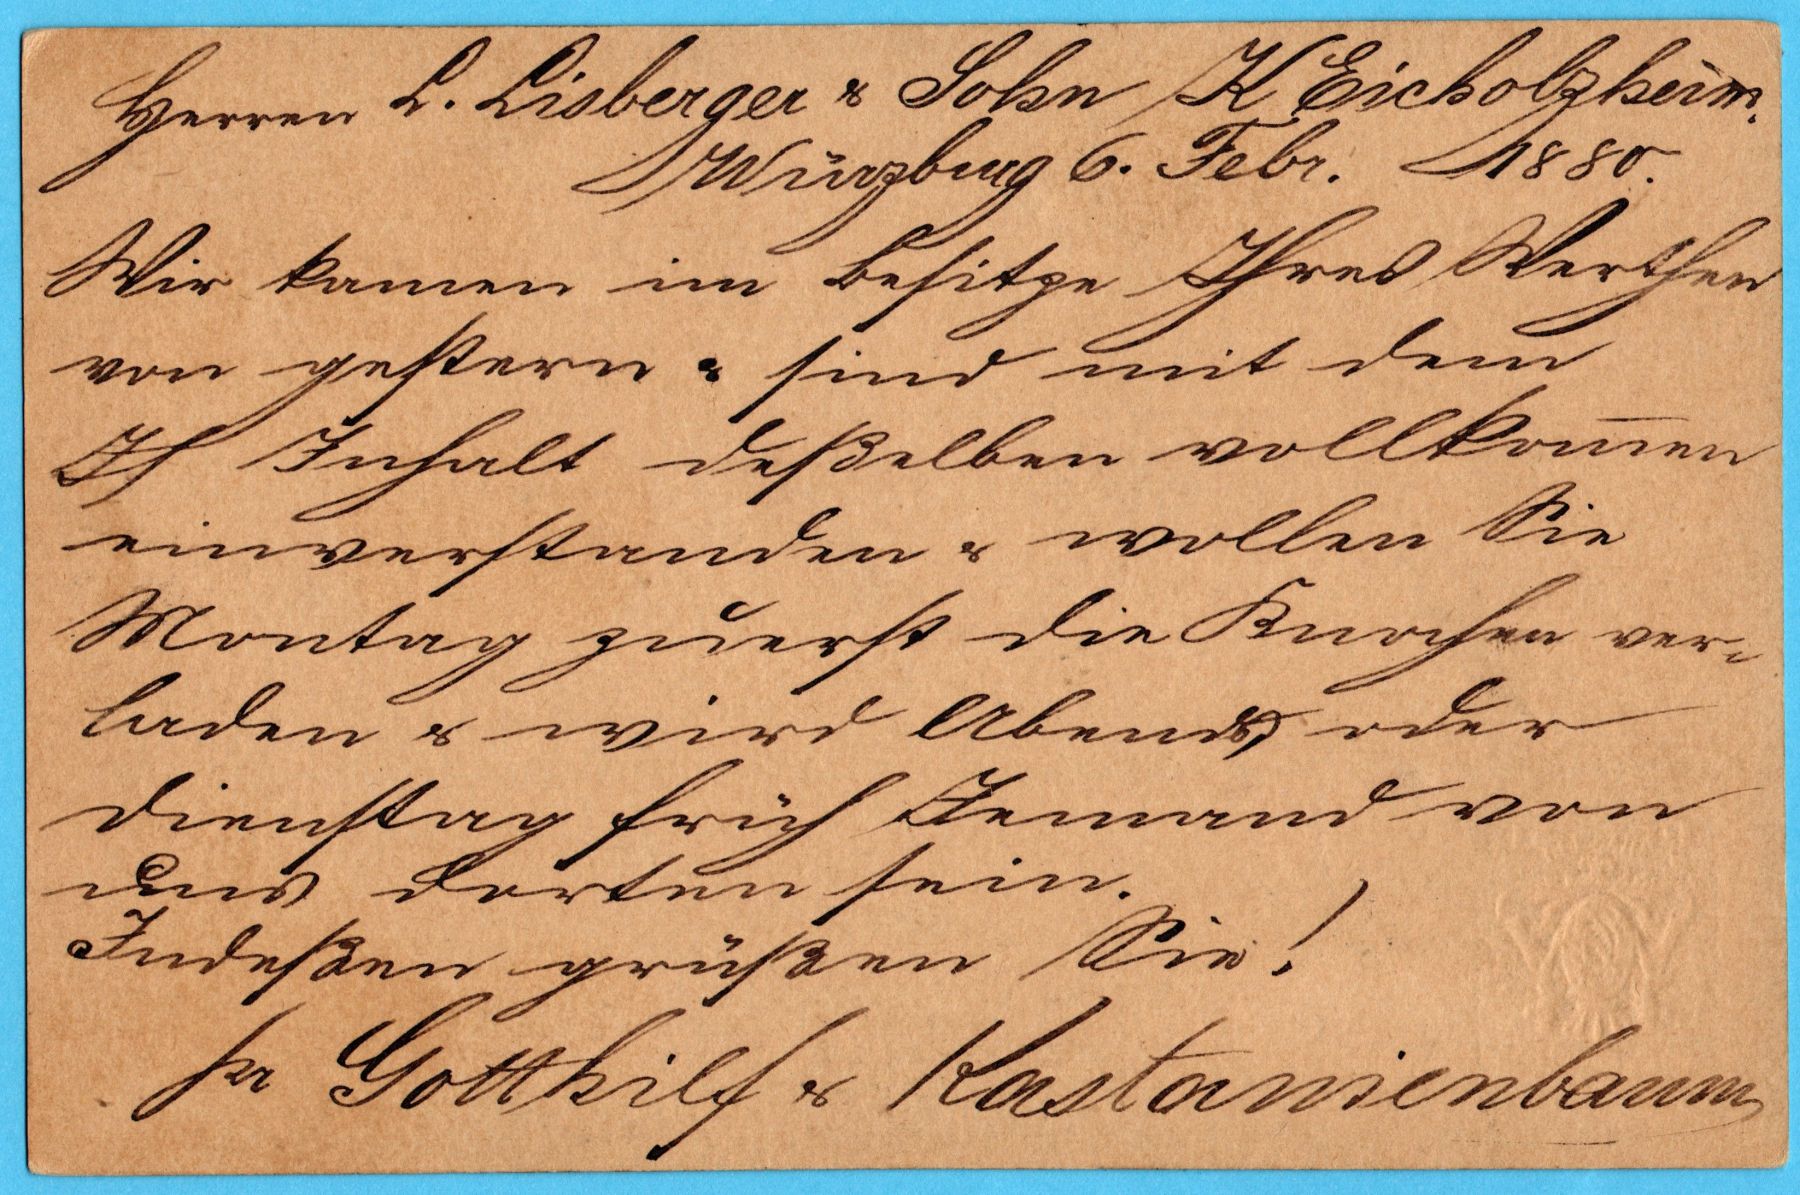 Herren L. Lisberger & Sohn K Eicholzheim.
Würzburg 6. Febr. 1880.
Wir kamen im Besitze Ihres Werthen
von gestern & sind mit dem
Inhalt deßelben vollkom̅en
einverstanden & wollen Sie
Montag zuerst die Knochen ver-
laden & wird Abends oder
Dienstag früh Jemand von
uns dorten sein.
Indeßen grüßen Sie!
pr Gotthilf & Kastanienbaum